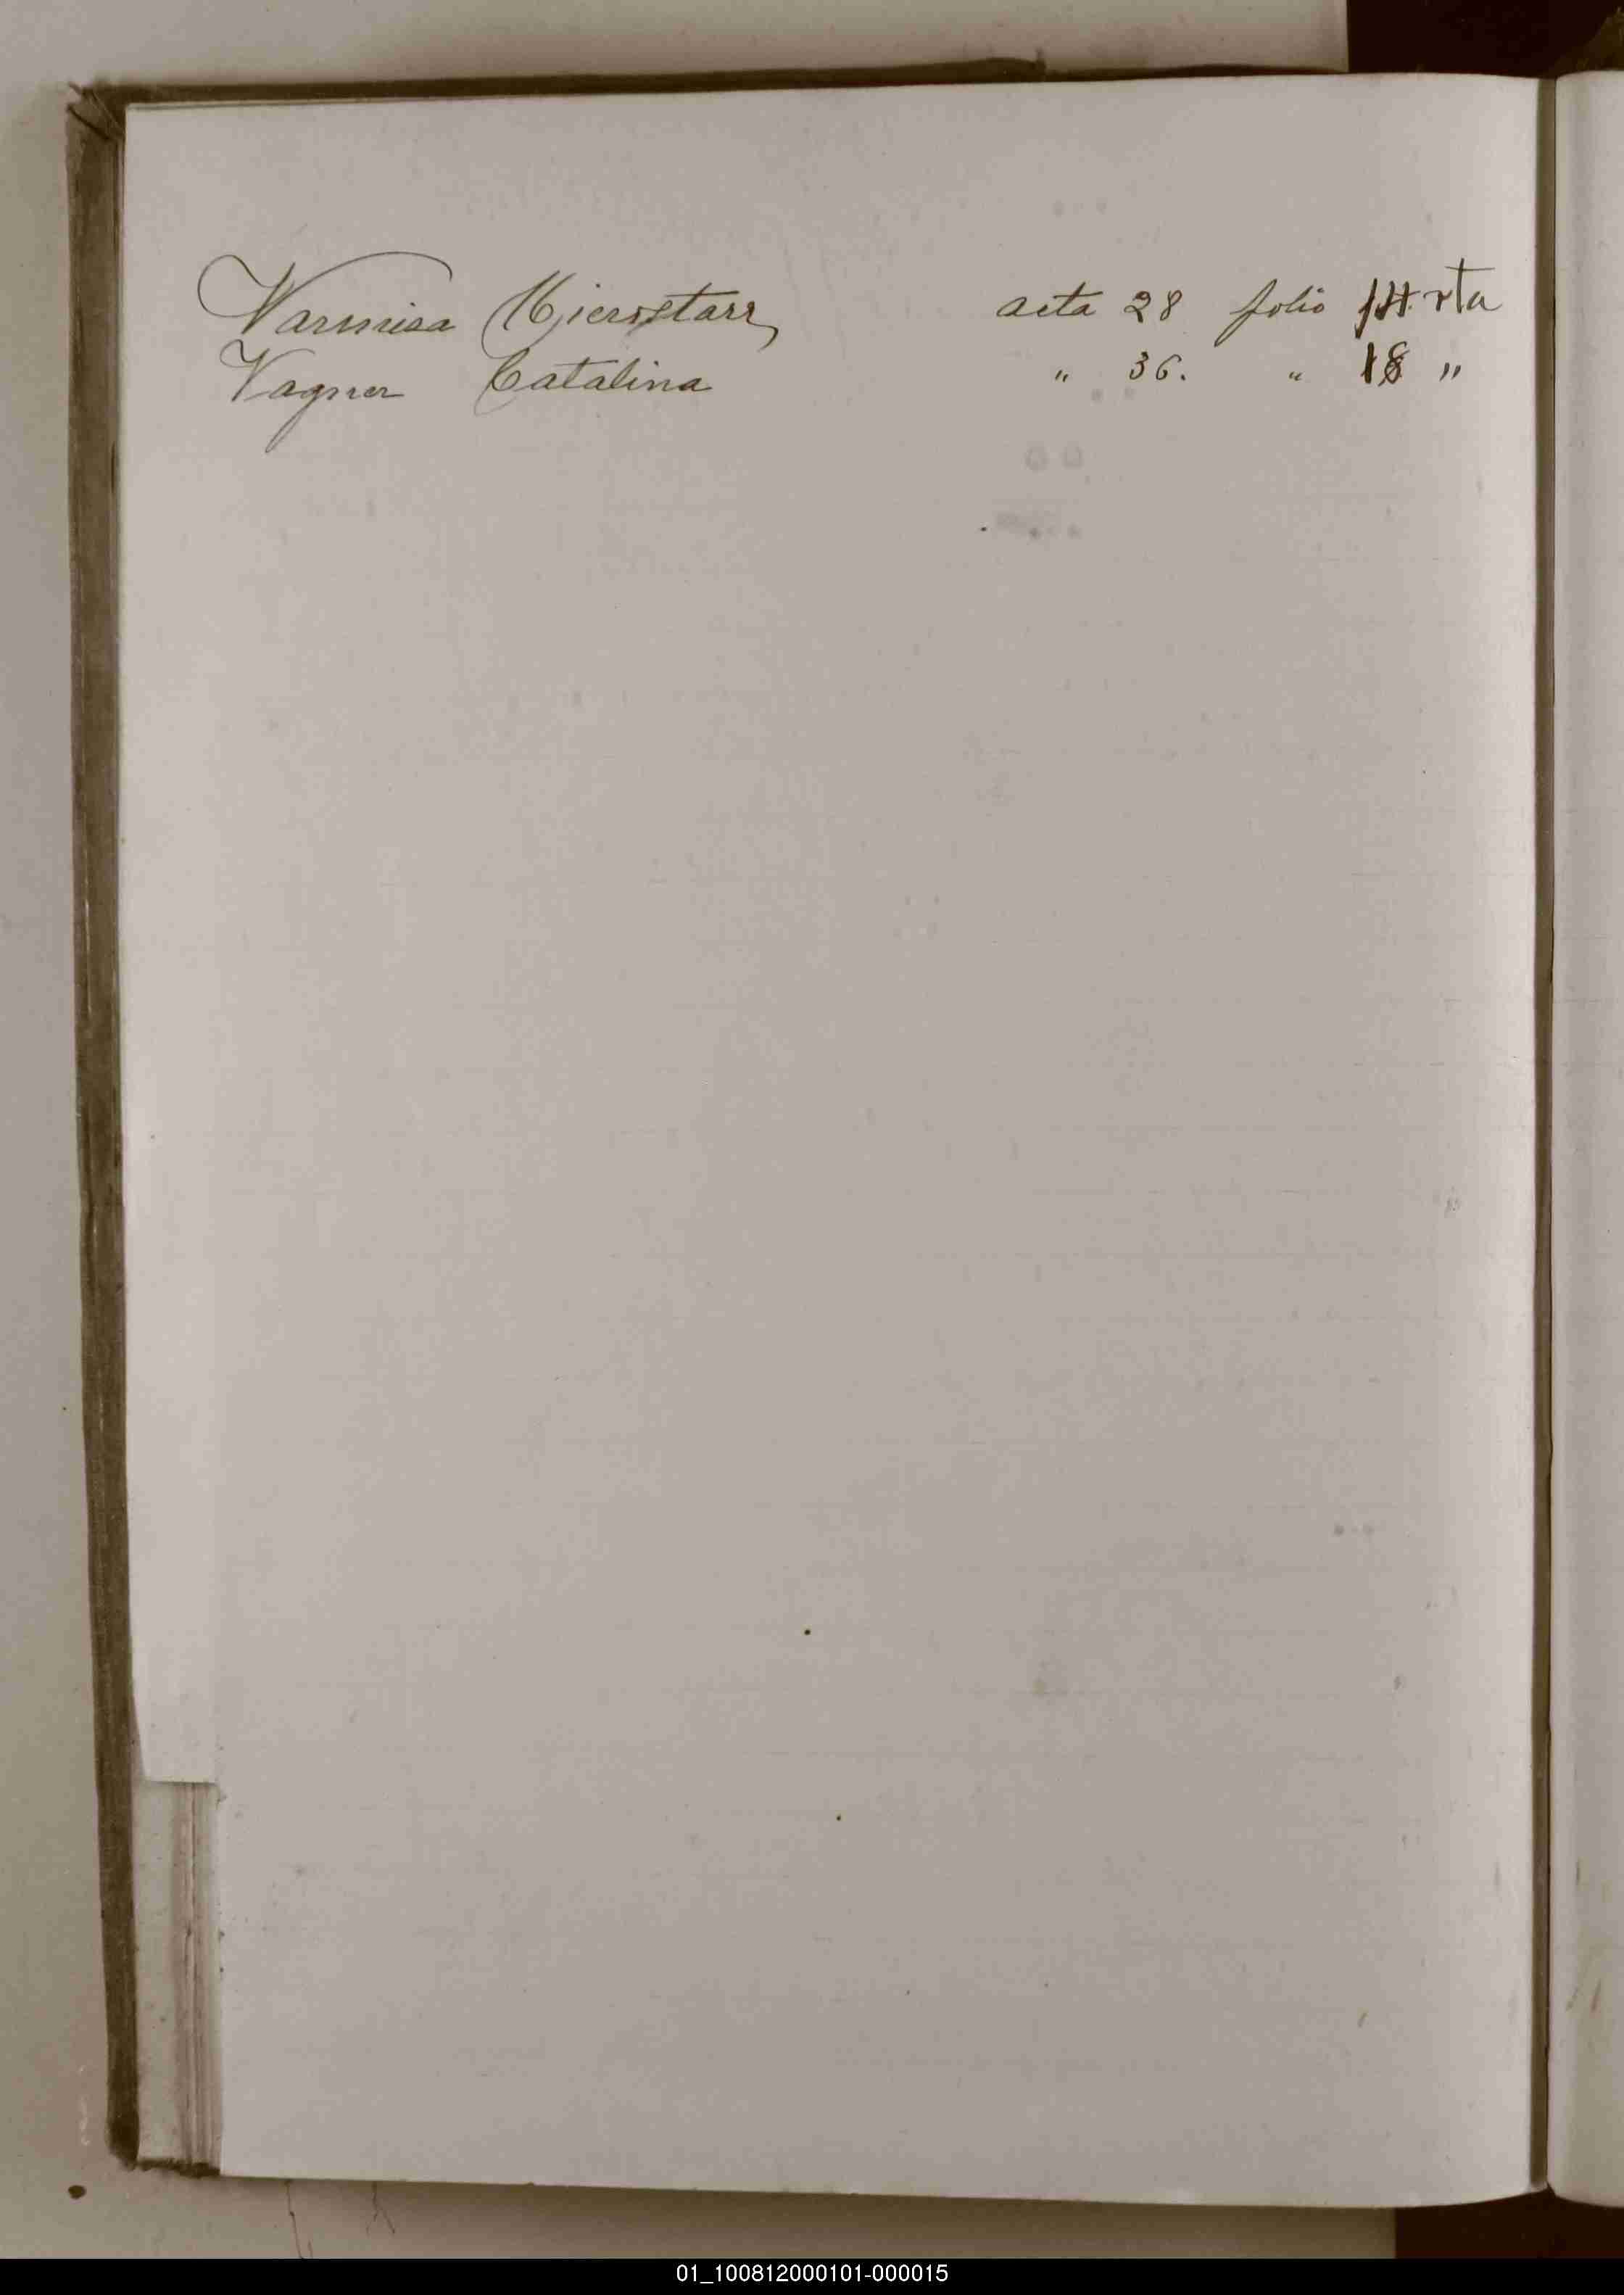 Varmisa acta 28 folio 14 vta
Vagner Catalina " 36. " 18 "
01_100812000101-000015